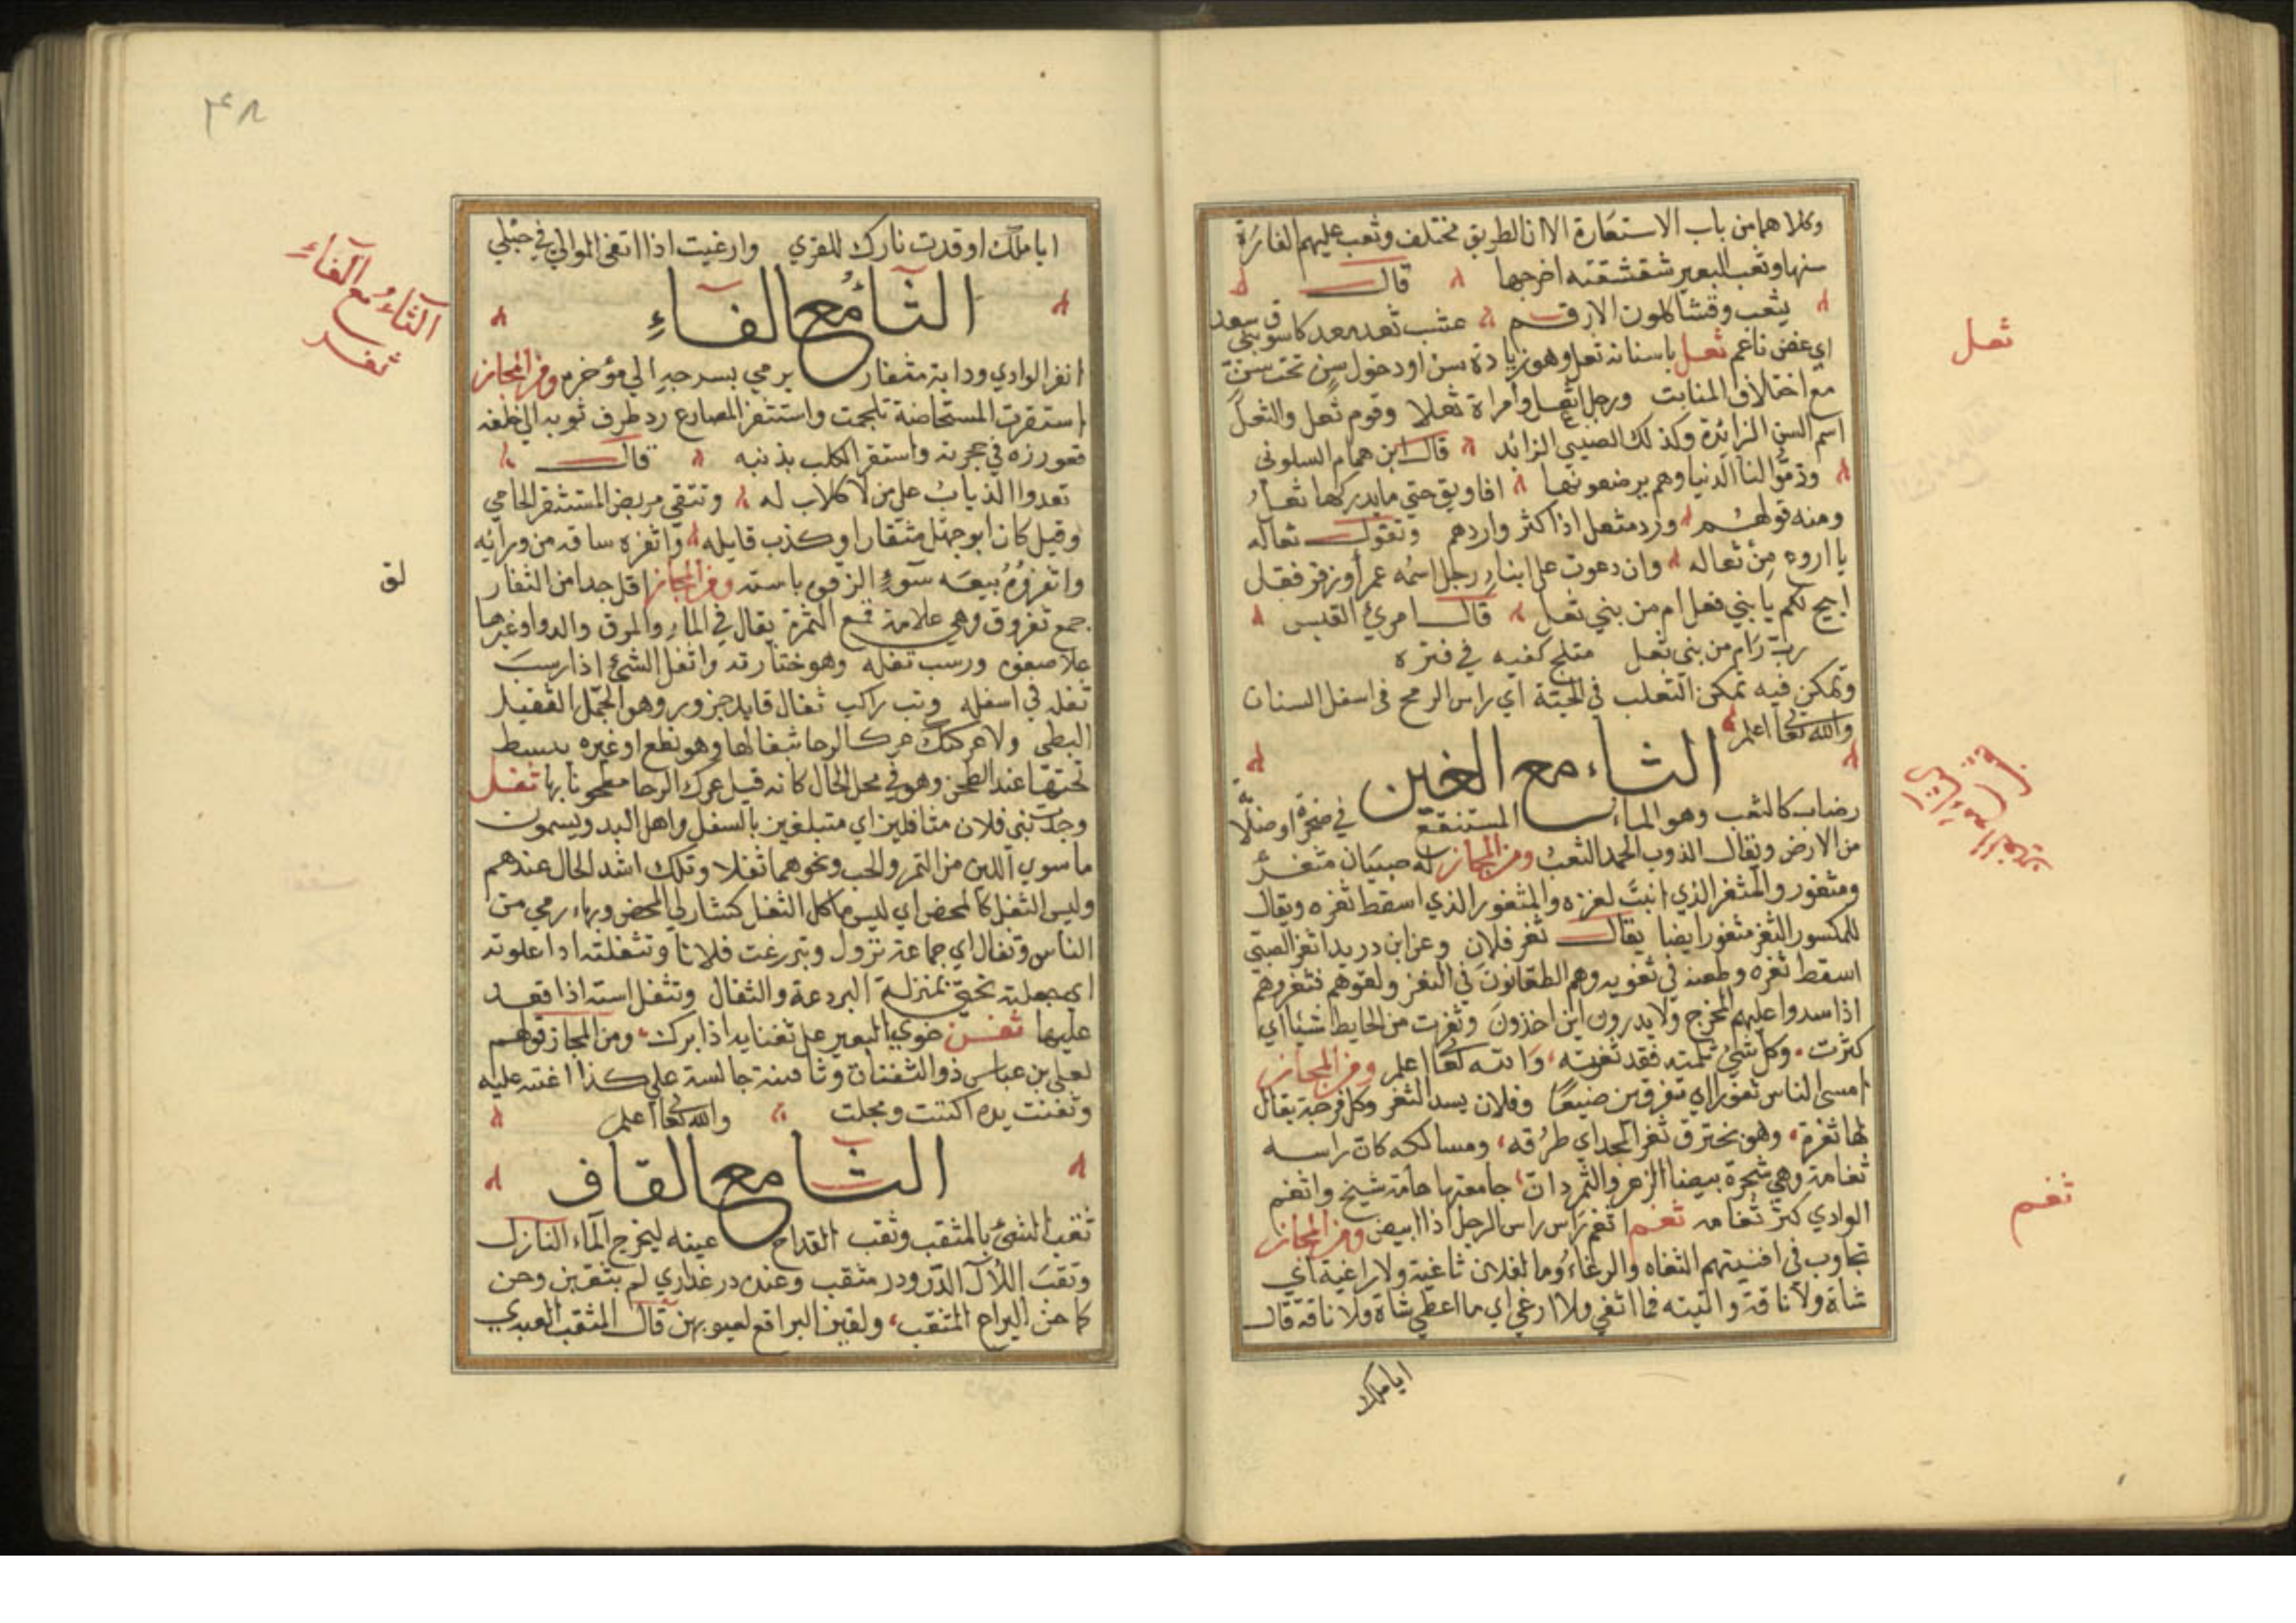 وكلاهما من باب الاستعارة الا ان الطريق مختلف وثعب عليهم الغارة
سنها وثعب البعير شقشقته اخرجها قال
يثعب وقشا كلون الارقم عشب ثعد معد كاسوق بني سعد
اي غض ناعم ثعل باسنانه ثعل وهو زيادة سن او دخول سن تحت سن
مع اختلاف المنابت ورجل اثعل وامراة ثعلا وقوم ثعل والثعل
اسم السن الزائدة وكذلك الصبي الزائد قال ابن همام السلوني
وذموا لنا الدنيا وهم يرضعونها افاويق حتي ما يدر لها ثعل
ومنه قولهم ورد مثعل اذا كثر واردهم وتقول ثعاله
يا اروه من ثعاله وان دعوت علي ابناء رجل اسمه عمر او زفر فقل
اجيح لكم يا بني فعل ام من بني ثعل قال امرئ القيس
رب رام من بني ثعل متلج كفيه في فتره
وتمكن فيه تمكن الثعلب في الجبة اي راس الرمح في اسفل السنان
والله تعا اعلم
الثاء مع الغين
رضاب كالثغب وهو الماء المستنقع في صخرة او
من الارض ويقال الذوب الجمد الثغب ومن المجاز له صبيان مثغر
ومثغور والمثغر الذي انبت لغزه والمثغور الذي اسقط ثغره ويقال
للمكسور الثغر مثغور ايضا يقال ثغر فلان وعن ابن دريد اثغر الصبي
اسقط ثغره وطعنه في ثغويه وهم الطعانون في الثغر ولقوهم فثغروهم
اذا سدوا عليهم المخرج ولا يدرون اين اخذون وثغرت من الحايط شيئا اي
كثرت وكل شئ ثلمته فقد ثغرته والله تعا اعلم ومن المجاز
امسي الناس ثغورا اي متفرقين ضيعا وفلان يسد الثغر وكل فرجة يقال
لها ثغرة وهو يخترق ثغر المجد اي طرقه ومسالكه كان راسه
ثغامة وهي شجرة بيضا الزهر والثمر دات جامعتها هامة شيخ واثغم
الوادي كثر ثغامه ثغم اثغم راس راس الرجل اذا ابيض ومن المجاز
تجاوب في افنيتهم الثغاه والرغاء وما لفلان ثاغية ولا راغية اي
شاة ولا ناقة واتيته فما اثغي ولا ارغي اي ما اعطي شاة ولا ناقة قال
ثعل
ثغم
ايا ملك
٤٨
ايا ملك اوقدت نارك للقري وارغيت اذا اثغي الموالي في حبلي
الثاء مع الفاء
الثاء مع الفاء
ثفر
اثفر الوادي ودابة مثفار يرمي بسرجه الي مؤخره ومن المجاز
استثفرت المستحاضة تلجمت واستثفر المصارع رد طرف ثوبه الي خلفه
فغورزه في حجرته واستثفر الكلب بذنبه قال
تعدوا الذياب علي من لا كلاب له وتتقي مربض المستثفر الحامي
وقيل كان ابو جهل مثفارا وكذب قايله واثفره ساقه من ورائه
لق
واثفروه بيعه سوء الزقوه باسته ومن المجاز اقل جدا من الثفار
جمع ثفروق وهي علاقة قمع الثمرة يقال في الماء والمرق والدوا وغيرها
علا صفوه ورسب ثفله وهو خثارته واثفل الشئ اذا رسب
ثفله في اسفله وتب راكب ثفال قايد جزور وهو الجمل الثقيل
البطي ولا عركنك عرك الرحا بثفالها وهو نطع او غيره يبسط
تحتها عند الطحن وهو في محل الحال كانه قيل عرك الرحا مطحونا بها ثفل
وجدت بني فلان مثافلين اي متبلغين بالسفل واهل البدو يسمون
ما سوي اللبن من التمر والحب ونحوهما ثفلا وتلك اشد الحال عندهم
وليس الثفل كالمحض اي ليس ماكل الثفل كشارب المحض وبهاء رمي من
الناس وثفال اي جماعة نزول وتبردعت فلانا وتثفلته اذا علوته
اي جعلته تحتي بمنزلة البردعة والثفال وتثفل استه اذا قعد
عليها ثفن خوي البعير علي ثفنايه اذا برك ومن المجاز قولهم
لعلي بن عباس ذو الثفنات وثافنته جالسته علي كذا اعنته عليه
وثفنت يده اكنبت ومجلت والله تعا اعلم
الثا مع القاف
ثقب الشئ بالمثقب وثقب القداح عينه ليخرج الماء النازل
وثقب اللال الدر ودر مثقب وعنده در عذاري لم يثقبن وحن
كما حن اليراح المثقب ولقين البراقع لعيوبهن قال المثقب العبدي